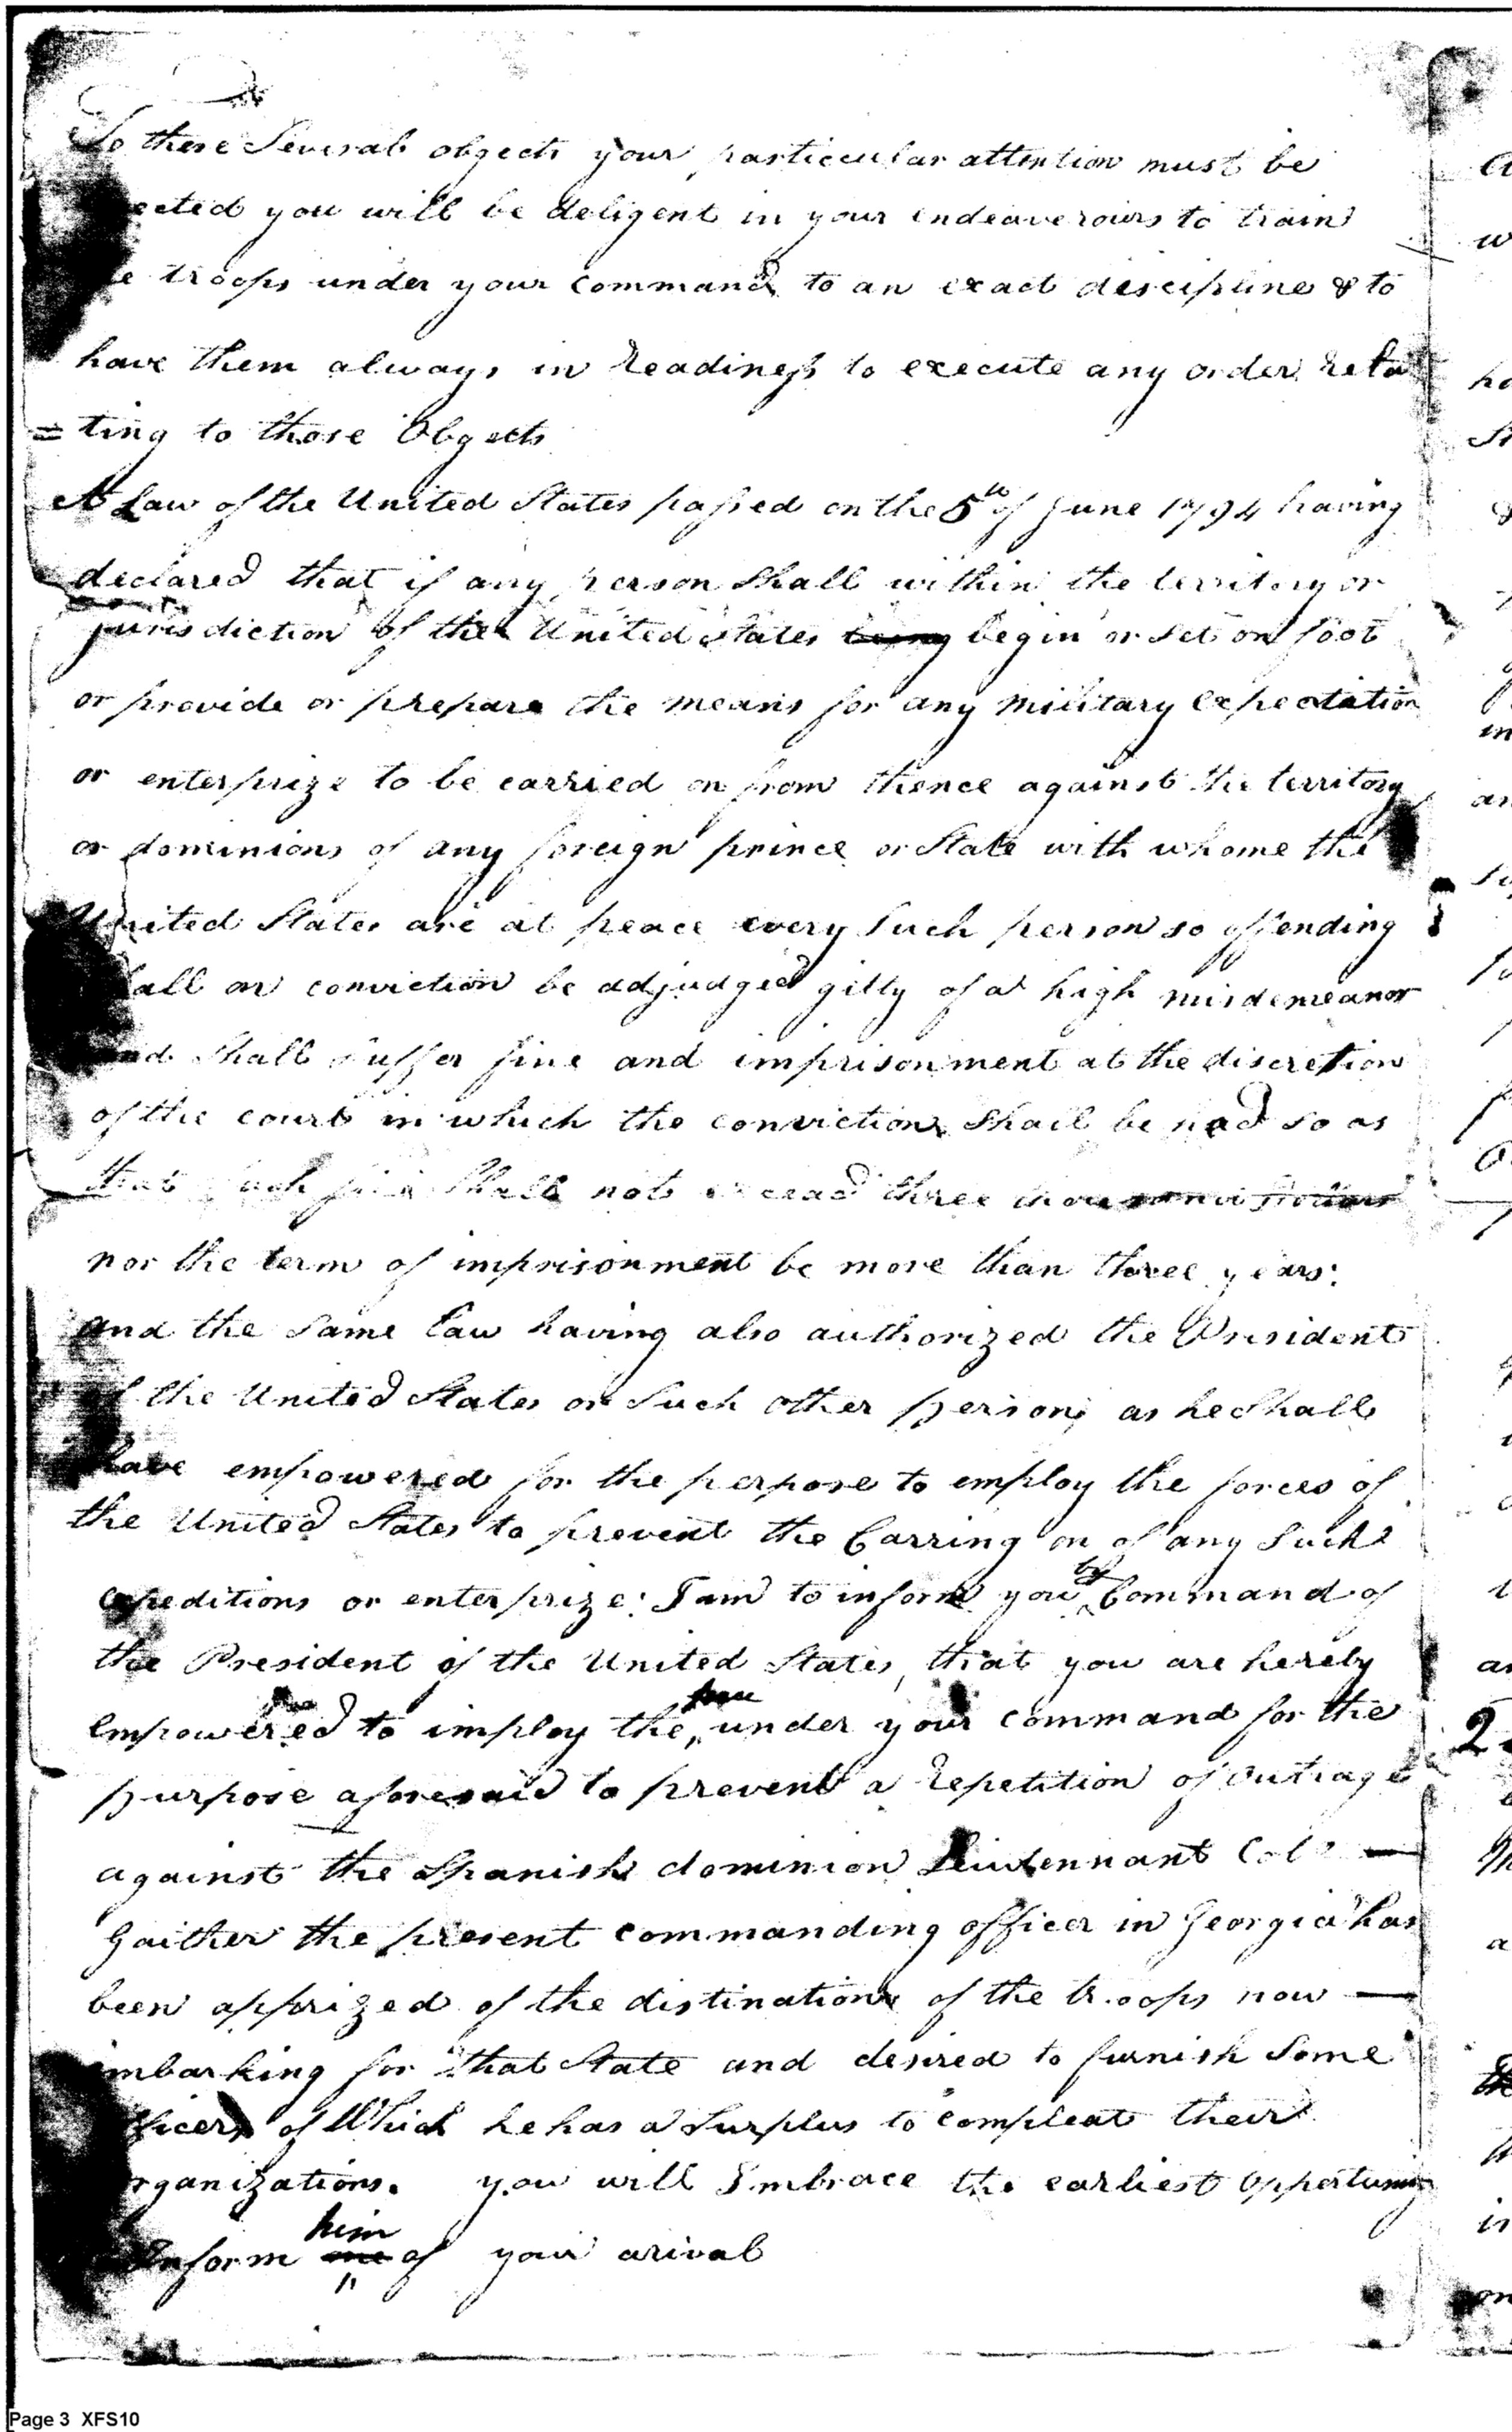 To these Several objects your particular attention must be
ected you will be deligent in your endeaverours to train
e troops under your command to an exact descipline & to
have them always in readiness to execute any order rela
= ting to those Objects
A Law of the United States passed on the 5th of June 1794 having
declared that if any person Shall within the territory or
jurisdiction of the United States begin or Set on foot
or provide or prepare the means for any military expectation
or enterprize to be carried on from thence against the territory
or dominions of any foreign prince or State with whome the
United States are at peace every Such person so offending
all on conviction be adjudged gilty of a high misdemeanor
and Shall Suffer fine and imprisonment at the discretion
of the court in which the conviction Shall be had so as
that Such fine Shall not exceed three thousand
nor the term of imprisonment be more than three years:
and the Same Law having also authorized the President
of the United States or Such other persons as he Shall
have empowered for the perpose to employ the forces of
the United States to prevent the Carring on of any Such
expeditions or enterprize: I am to inform you by Command of
the President of the United States, that you are hereby
Empowered to imploy the under your command for the
purpose aforesaid to prevent a repetition of outrage
against the Spanish dominion Leiutennant Col
Gaither the present commanding officer in Georgia has
been apprized of the distinations of the troops now
mbarking for that State and desired to furnish Some
ficers of Which he has a Surplus to compleat their
rganizations. you will Imbrace the earliest oppertuni
Inform him of your arival
Page 3 XFS10